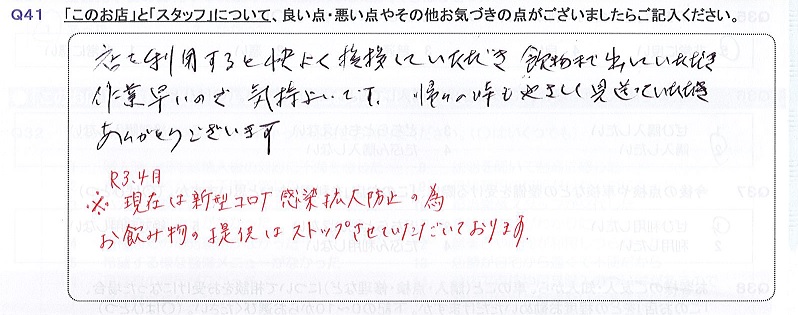 Q41 「このお店」と「スタッフ」について、良い点・悪い点やその他お気づきの点がございましたらご記入ください。
店を利用すると快よく挨拶していただき 飲物まで出していただき
作業早いので 気持よいです。帰りの時もやさしく見送っていただき
ありがとうございます
R3.4月
※ 現在は新型コロナ感染拡大防止の為
お飲み物の提供はストップさせていただいております。